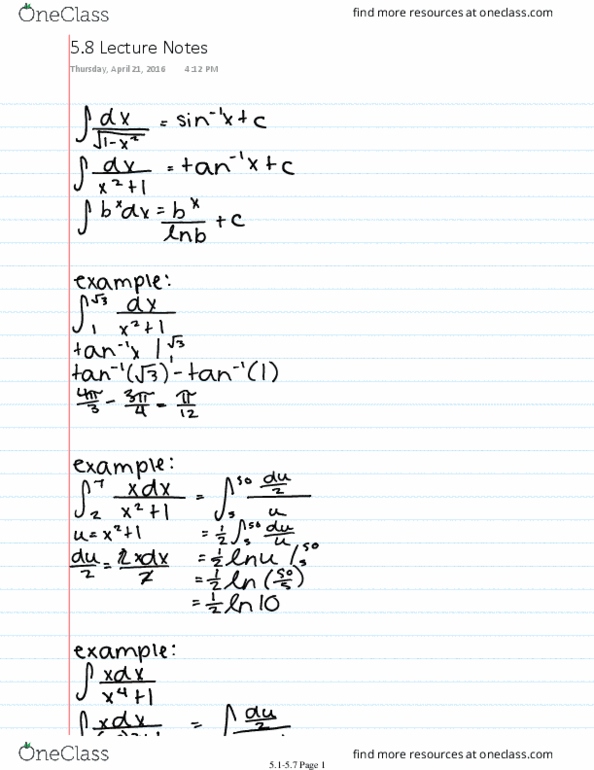 OneClass find more resources at oneclass.com
5.8 Lecture Notes
Thursday, April 21, 2016 4:12 PM
∫ dx/√(1-x²) = sin⁻¹x + c
∫ dx/(x²+1) = tan⁻¹x + c
∫ bˣdx = bˣ/lnb + c
example:
∫₁^√3 dx/(x²+1)
tan⁻¹x |₁^√3
tan⁻¹(√3) - tan⁻¹(1)
4π/3 - 3π/4 = π/12
example:
∫₂⁷ xdx/(x²+1) = ∫₅⁵⁰ (du/2)/u
u = x²+1 = ½ ∫₅⁵⁰ du/u
du/2 = 2xdx/2 = ½ ln u |₅⁵⁰
= ½ ln (50/5)
= ½ ln 10
example:
∫ xdx/(x⁴+1)
∫ xdx = ∫ du/2
OneClass find more resources at oneclass.com
5.1-5.7 Page 1